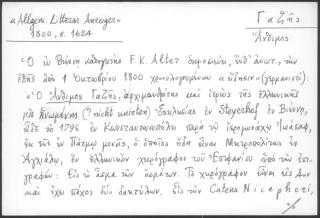 «Allgem. Litterar. Anzeiger»
1800, σ. 1624
Γαζῆς
Ἄνθιμος
Ὁ ἐν Βιέννῃ καθηγητὴς F. K. Alter δημοσιεύει, ὑπ' ἀριθ. , τὴν
ἑξῆς ἀπὸ 1 Ὀκτωβρίου 1800 χρονολογουμένην «εἴδησιν» (γερμανιστί).
«Ὁ Ἄνθιμος Γαζῆς, ἀρχιμανδρίτης καὶ ἱερεὺς τῆς ἑλληνικῆς
μὴ ἑνωμένης (? nicht unirten) ἐκκλησίας ἐν Steyerhof ἐν Βιέννῃ,
εἶδε τὸ 1796 ἐν Κωνσταντινουπόλει παρὰ τῷ ἱερομονάχῳ Ἰωάσαφ,
ἐκ τῆς ἐν Πάτμῳ μονῆς, ὁ ὁποῖος ἤδη εἶναι Μητροπολίτης ἐν
Ἀγχιάλῳ, ἓν ἑλληνικὸν χειρόγραφον τοῦ Ἐπιφανίου ὑπὸ τὴν ἐπι-
γραφήν: Εἰς τὸ ᾆσμα τῶν ᾀσμάτων. Τὸ χειρόγραφον εἶναι εἰς 4ον
καὶ ἔχει πάχος δύο δακτύλων. Εἰς τὴν Catena Nicephori,